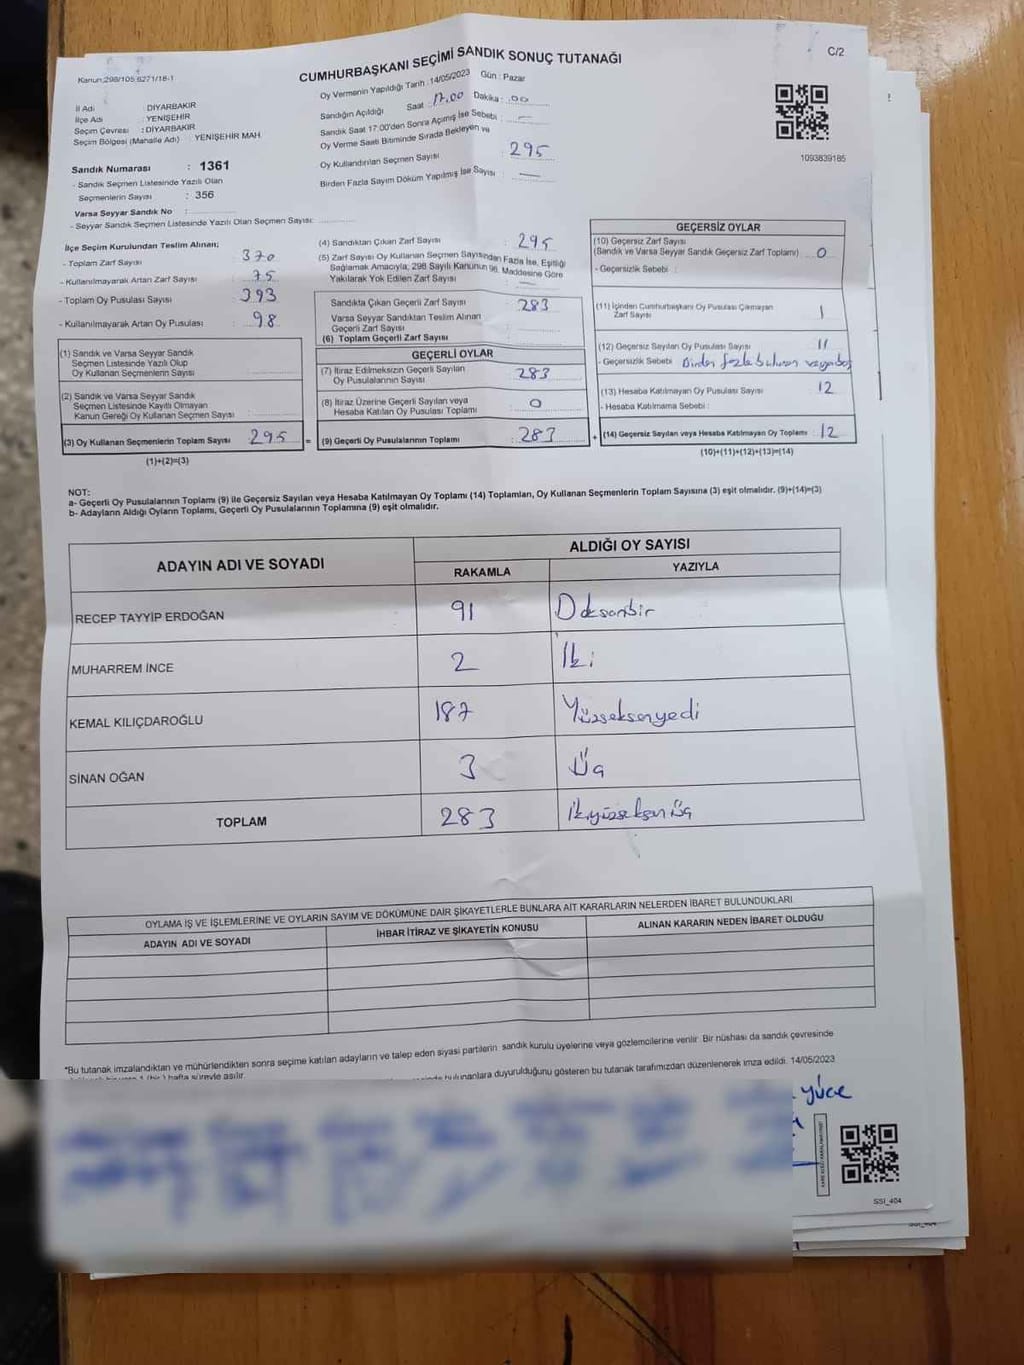 Kanun:298/105 6271/18-1
CUMHURBAŞKANI SEÇİMİ SANDIK SONUÇ TUTANAĞI
C/2
İl Adı : DİYARBAKIR
İlçe Adı : YENİŞEHİR
Seçim Çevresi : DİYARBAKIR
Seçim Bölgesi (Mahalle Adı) : YENİŞEHİR MAH.
Sandık Numarası : 1361
- Sandık Seçmen Listesinde Yazılı Olan
Seçmenlerin Sayısı : 356
Varsa Seyyar Sandık No :
- Seyyar Sandık Seçmen Listesinde Yazılı Olan Seçmen Sayısı:
Oy Vermenin Yapıldığı Tarih : 14/05/2023 Gün : Pazar
Sandığın Açıldığı Saat : 17.00 Dakika : 00
Sandık Saat 17:00'den Sonra Açımış İse Sebebi : —
Oy Verme Saati Bitiminde Sırada Bekleyen ve
Oy Kullandırılan Seçmen Sayısı : 295
Birden Fazla Sayım Döküm Yapılmış İse Sayısı : —
1093839185
İlçe Seçim Kurulundan Teslim Alınan;
- Toplam Zarf Sayısı : 370
- Kullanılmayarak Artan Zarf Sayısı : 75
- Toplam Oy Pusulası Sayısı : 393
- Kullanılmayarak Artan Oy Pusulası : 98
(1) Sandık ve Varsa Seyyar Sandık
Seçmen Listesinde Yazılı Olup
Oy Kullanan Seçmenlerin Sayısı :
(2) Sandık ve Varsa Seyyar Sandık
Seçmen Listesinde Kayıtlı Olmayan
Kanun Gereği Oy Kullanan Seçmen Sayısı :
(3) Oy Kullanan Seçmenlerin Toplam Sayısı : 295 =
(1)+(2)=(3)
(4) Sandıktan Çıkan Zarf Sayısı : 295
(5) Zarf Sayısı Oy Kullanan Seçmen Sayısından Fazla İse, Eşitliği
Sağlamak Amacıyla, 298 Sayılı Kanunun 98. Maddesine Göre
Yakılarak Yok Edilen Zarf Sayısı : —
Sandıkta Çıkan Geçerli Zarf Sayısı : 283
Varsa Seyyar Sandıktan Teslim Alınan
Geçerli Zarf Sayısı :
(6) Toplam Geçerli Zarf Sayısı :
GEÇERLİ OYLAR
(7) İtiraz Edilmeksizin Geçerli Sayılan
Oy Pusulalarının Sayısı : 283
(8) İtiraz Üzerine Geçerli Sayılan veya
Hesaba Katılan Oy Pusulası Toplamı : 0
(9) Geçerli Oy Pusulalarının Toplamı : 283 +
GEÇERSİZ OYLAR
(10) Geçersiz Zarf Sayısı
(Sandık ve Varsa Seyyar Sandık Geçersiz Zarf Toplamı) : 0
- Geçersizlik Sebebi :
(11) İçinden Cumhurbaşkanı Oy Pusulası Çıkmayan
Zarf Sayısı : 1
(12) Geçersiz Sayılan Oy Pusulası Sayısı : 11
- Geçersizlik Sebebi : Birden fazla bulunan veya boş
(13) Hesaba Katılmayan Oy Pusulası Sayısı : 12
- Hesaba Katılmama Sebebi :
(14) Geçersiz Sayılan veya Hesaba Katılmayan Oy Toplamı : 12
(10)+(11)+(12)+(13)=(14)
NOT:
a- Geçerli Oy Pusulalarının Toplamı (9) ile Geçersiz Sayılan veya Hesaba Katılmayan Oy Toplamı (14) Toplamları, Oy Kullanan Seçmenlerin Toplam Sayısına (3) eşit olmalıdır. (9)+(14)=(3)
b- Adayların Aldığı Oyların Toplamı, Geçerli Oy Pusulalarının Toplamına (9) eşit olmalıdır.
ADAYIN ADI VE SOYADI
ALDIĞI OY SAYISI
RAKAMLA YAZIYLA
RECEP TAYYİP ERDOĞAN 91 Doksanbir
MUHARREM İNCE 2 İki
KEMAL KILIÇDAROĞLU 187 Yüzseksenyedi
SİNAN OĞAN 3 Üç
TOPLAM 283 İkiyüzseksenüç
OYLAMA İŞ VE İŞLEMLERİNE VE OYLARIN SAYIM VE DÖKÜMÜNE DAİR ŞİKAYETLERLE BUNLARA AİT KARARLARIN NELERDEN İBARET BULUNDUKLARI
ADAYIN ADI VE SOYADI İHBAR İTİRAZ VE ŞİKAYETİN KONUSU ALINAN KARARIN NEDEN İBARET OLDUĞU
*Bu tutanak imzalandıktan ve mühürlendikten sonra seçime katılan adayların ve talep eden siyasi partilerin sandık kurulu üyelerine veya gözlemcilerine verilir. Bir nüshası da sandık çevresinde
1 (bir) hafta süreyle asılır.
bulunanlara duyurulduğunu gösteren bu tutanak tarafımızdan düzenlenerek imza edildi. 14/05/2023
Yüce
SSI_404